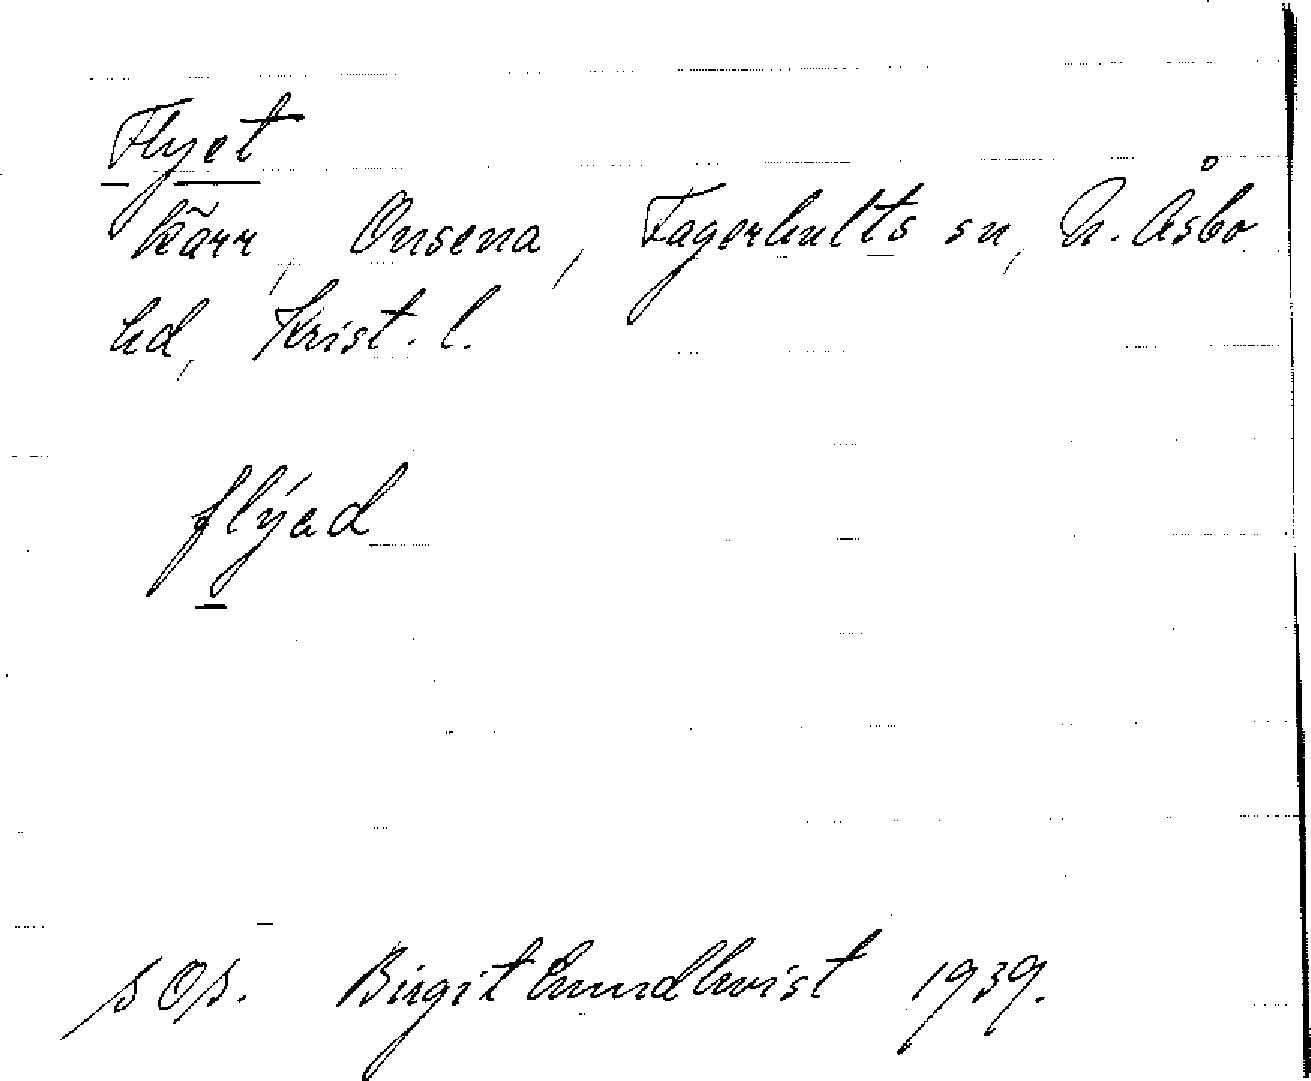 Flyet
kärr, Onsena, Fagerhults sn, N. Åsbo
hd, Krist. l.
flýad
sOs. Birgit Lundkvist 1939.